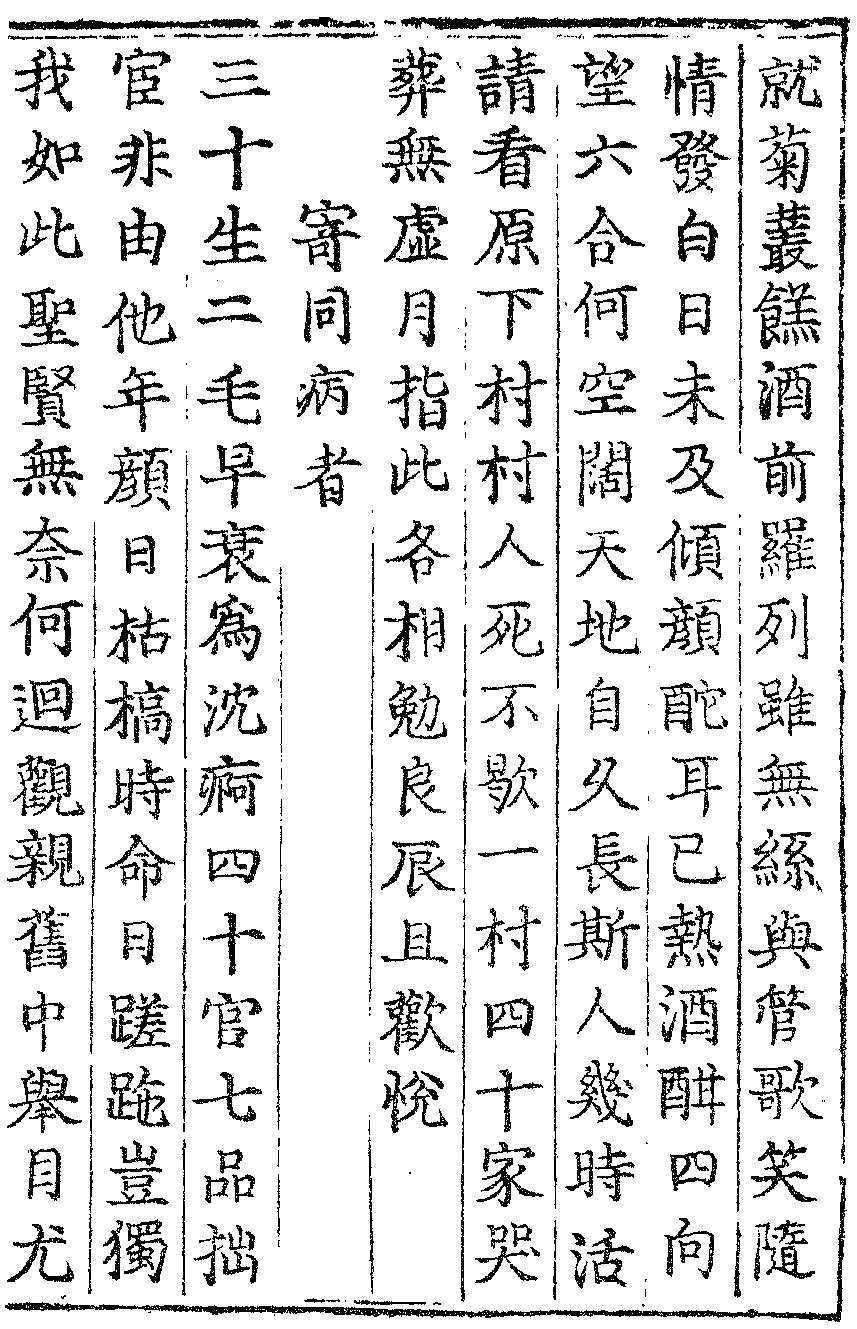 就菊叢餻酒前羅列雖無絲與管歌笑隨
情發白日未及傾顔酡耳已熱酒酣四向
望六合何空闊天地自久長斯人幾時活
請看原下村村人死不歇一村四十家哭
葬無虛月指此各相勉良辰且歡悅
寄同病者
三十生二毛早衰爲沈痾四十官七品拙
宦非由他年顔日枯槁時命日蹉跎豈獨
我如此聖賢無奈何迴觀親舊中舉目尤